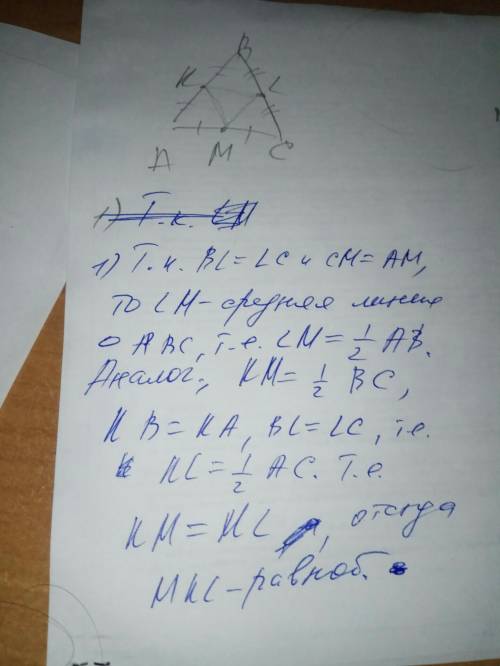 B
K L
A M C
1) Т.к. LM
1) Т.к. BL=LC и CM=AM,
то LM-средняя линия
ABC, т.е. LM=1/2 AB.
Аналог., KM=1/2 BC,
KB=KA, BL=LC, т.е.
KL=1/2 AC. Т.е.
KM=KL, откуда
MKL-равноб.